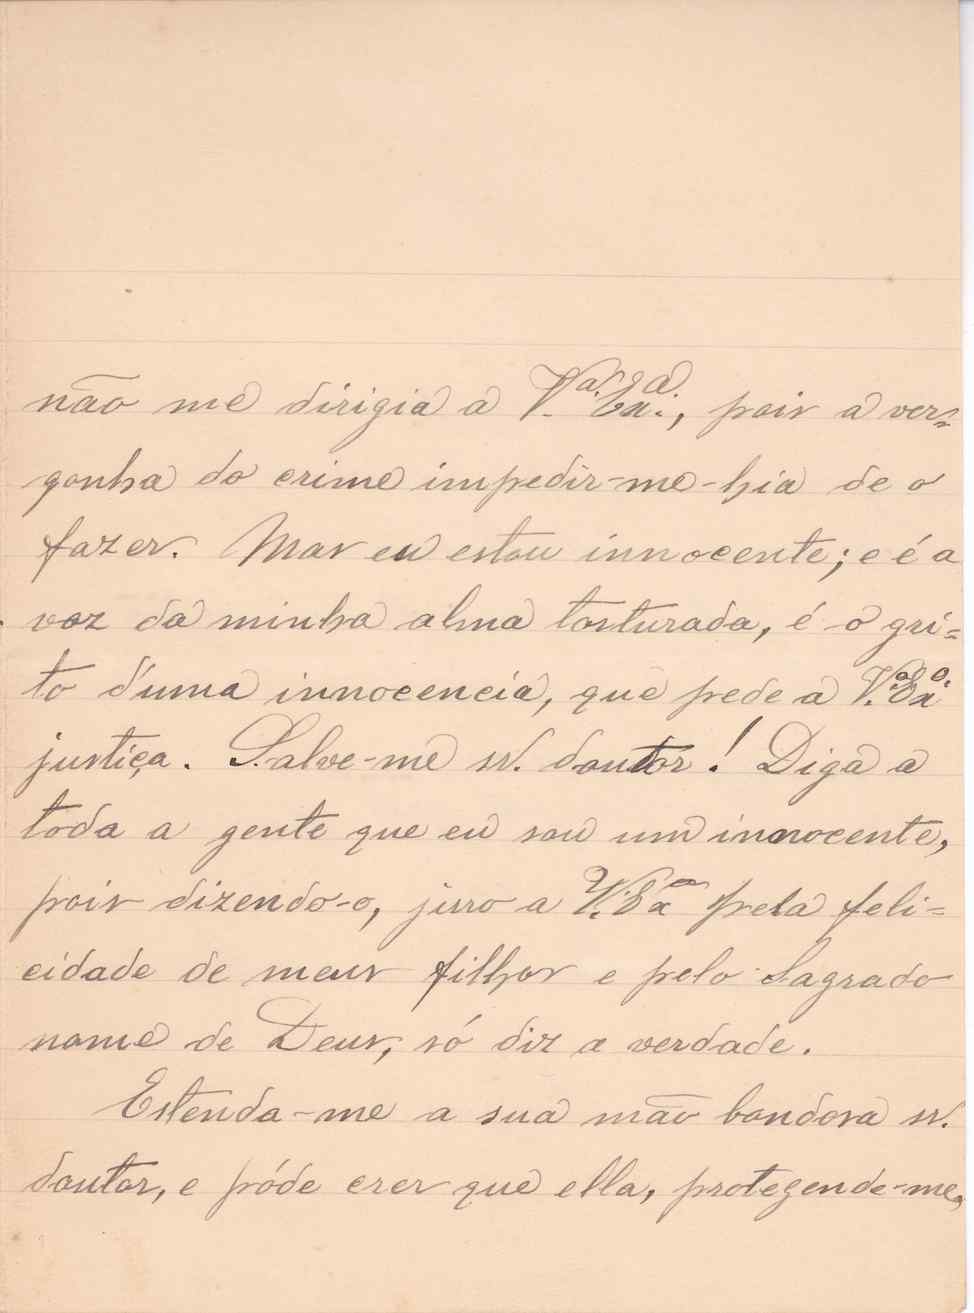 não me dirigia a V.ª Ex.ª, pois a ver=
gonha do crime impedir-me-hia de o
fazer. Mas eu estou innocente; e é a
voz da minha alma torturada, é o gri=
to d'uma innocencia, que pede a V.ª Ex.ª
justiça. Salve-me sr. doutor! Diga a
toda a gente que eu sou um innocente,
pois dizendo-o, juro a V. Exª pela feli=
cidade de meus filhos e pelo Sagrado
nome de Deus, só diz a verdade.
Estenda-me a sua mão bondosa sr.
doutor, e póde crer que ella, protegende-me,